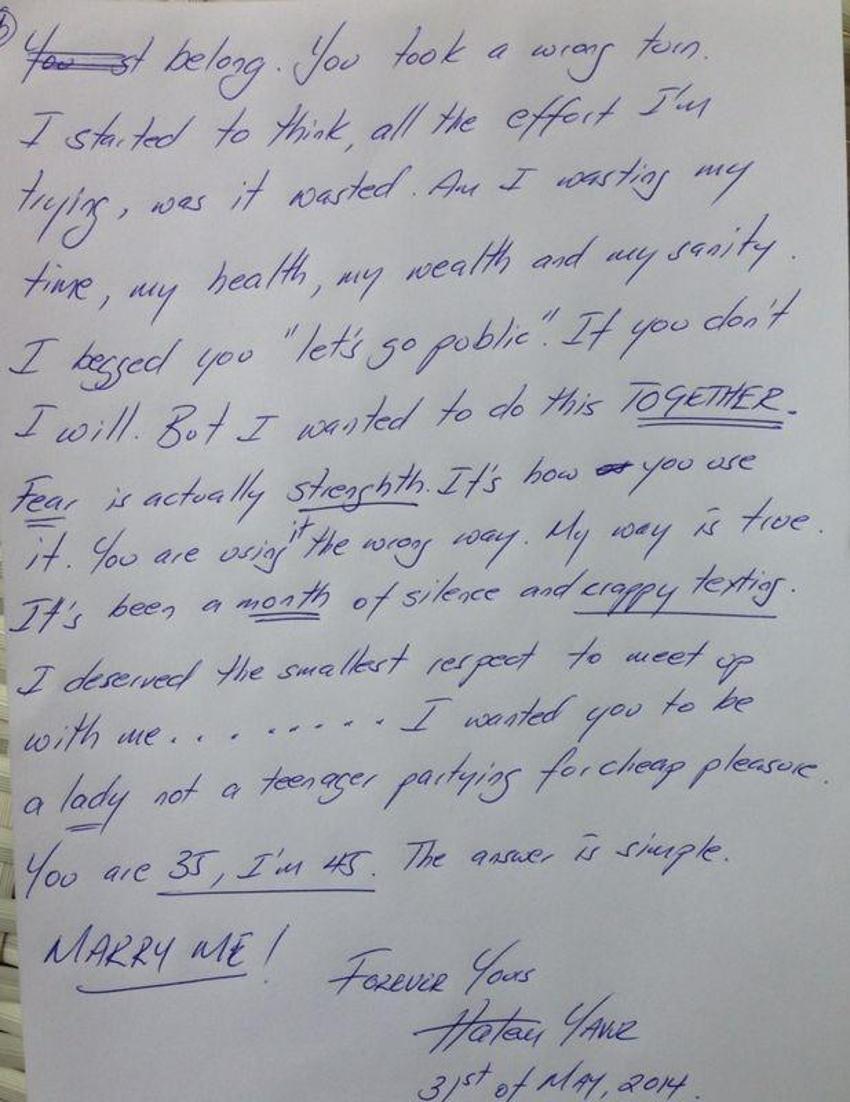 belong. You took a wrong turn.
I started to think, all the effort I'm
trying, was it wasted. Am I wasting my
time, my health, my wealth and my sanity.
I begged you "let's go public". If you don't
I will. But I wanted to do this TOGETHER.
Fear is actually strenghth. It's how you use
it. You are using it the wrong way. My way is true.
It's been a month of silence and crappy texting.
I deserved the smallest respect to meet up
with me......... I wanted you to be
a lady not a teenager partying for cheap pleasure.
You are 35, I'm 45. The answer is simple.
MARRY ME!
FOREVER YOURS
31st of MAY, 2014.